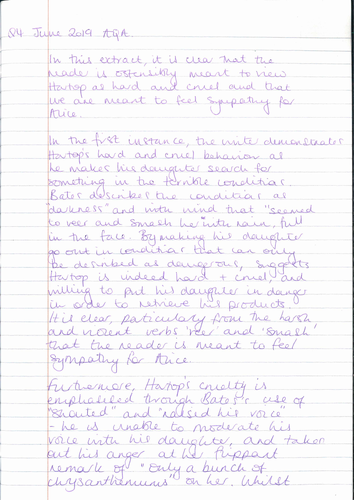 Q4 June 2019 AQA
In this extract, it is clear that the
reader is ostensibly meant to view
Hartop as hard and cruel and that
we are meant to feel sympathy for
Alice.
In the first instance, the writer demonstrates
Hartop's hard and cruel behavior as
he makes his daughter search for
something in the terrible conditions.
Bates describes the conditions as
darkness" and with wind that "seemed
to veer and smash her" with rain, full
in the face. By making his daughter
go out in conditions that can only
be described as dangerous, suggests
Hartop is indeed hard + cruel, and
willing to put his daughter in danger
in order to retrieve his products.
It is clear, particularly from the harsh
and violent verbs 'veer' and 'smash'
that the reader is meant to feel
sympathy for Alice.
Furthermore, Hartop's cruelty is
emphasised through Bates's use of
"shouted" and "raised his voice"
- he is unable to moderate his
voice with his daughter, and takes
out his anger at her flippant
remark of "only a bunch of
chrysanthemums" on her. Whilst